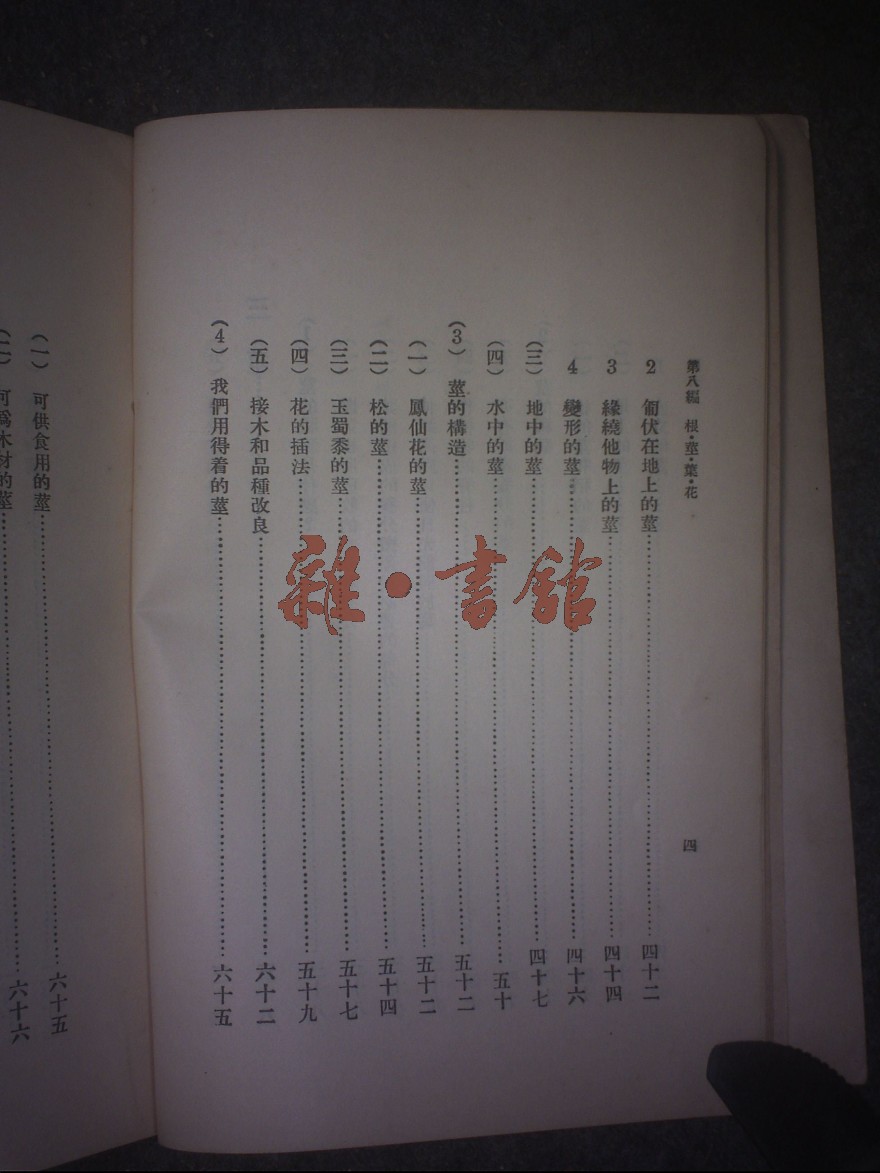 第八編 根·莖·葉·花
四
2 匍伏在地上的莖……四十二
3 緣繞他物上的莖……四十四
4 變形的莖……四十六
(三) 地中的莖……四十七
(四) 水中的莖……五十
(3) 莖的構造……五十二
(一) 鳳仙花的莖……五十二
(二) 松的莖……五十四
(三) 玉蜀黍的莖……五十七
(四) 花的插法……五十九
(五) 接木和品種改良……六十二
(4) 我們用得着的莖……六十五
(一) 可供食用的莖……六十五
(二) 可爲木材的莖……六十六
雜·書館